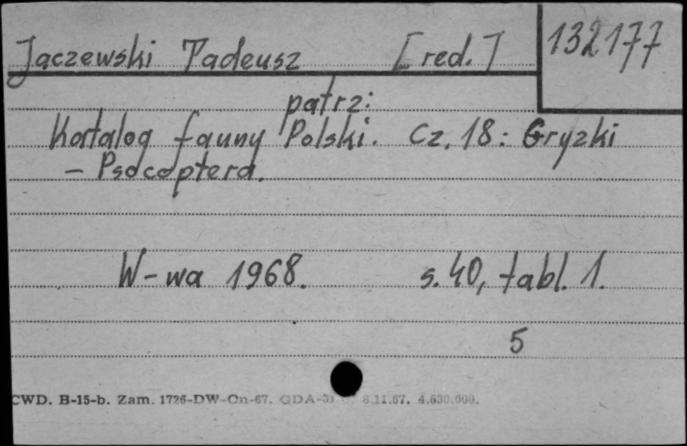 Jaczewski Tadeusz [red.] 132177
patrz:
Katalog fauny Polski. Cz. 18: Gryzki
- Psocoptera.
W-wa 1968. s. 40, tabl. 1.
5
CWD. B-15-b. Zam. 1726-DW-On-67. GDA-31 8.11.67. 4.630.000.